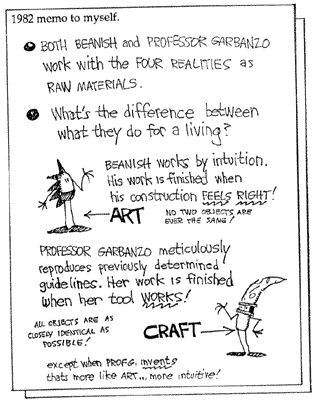 1982 memo to myself.
BOTH BEANISH and PROFESSOR GARBANZO
work with the FOUR REALITIES as
RAW MATERIALS.
What's the difference between
what they do for a living?
BEANISH works by intuition.
His work is finished when
his construction FEELS RIGHT!
ART
NO TWO OBJECTS ARE
EVER THE SAME!
PROFESSOR GARBANZO meticulously
reproduces previously determined
guidelines. Her work is finished
when her tool WORKS!
ALL OBJECTS ARE AS
CLOSELY IDENTICAL AS
POSSIBLE!
CRAFT
except when PROF G. invents
thats more like ART... more intuitive!